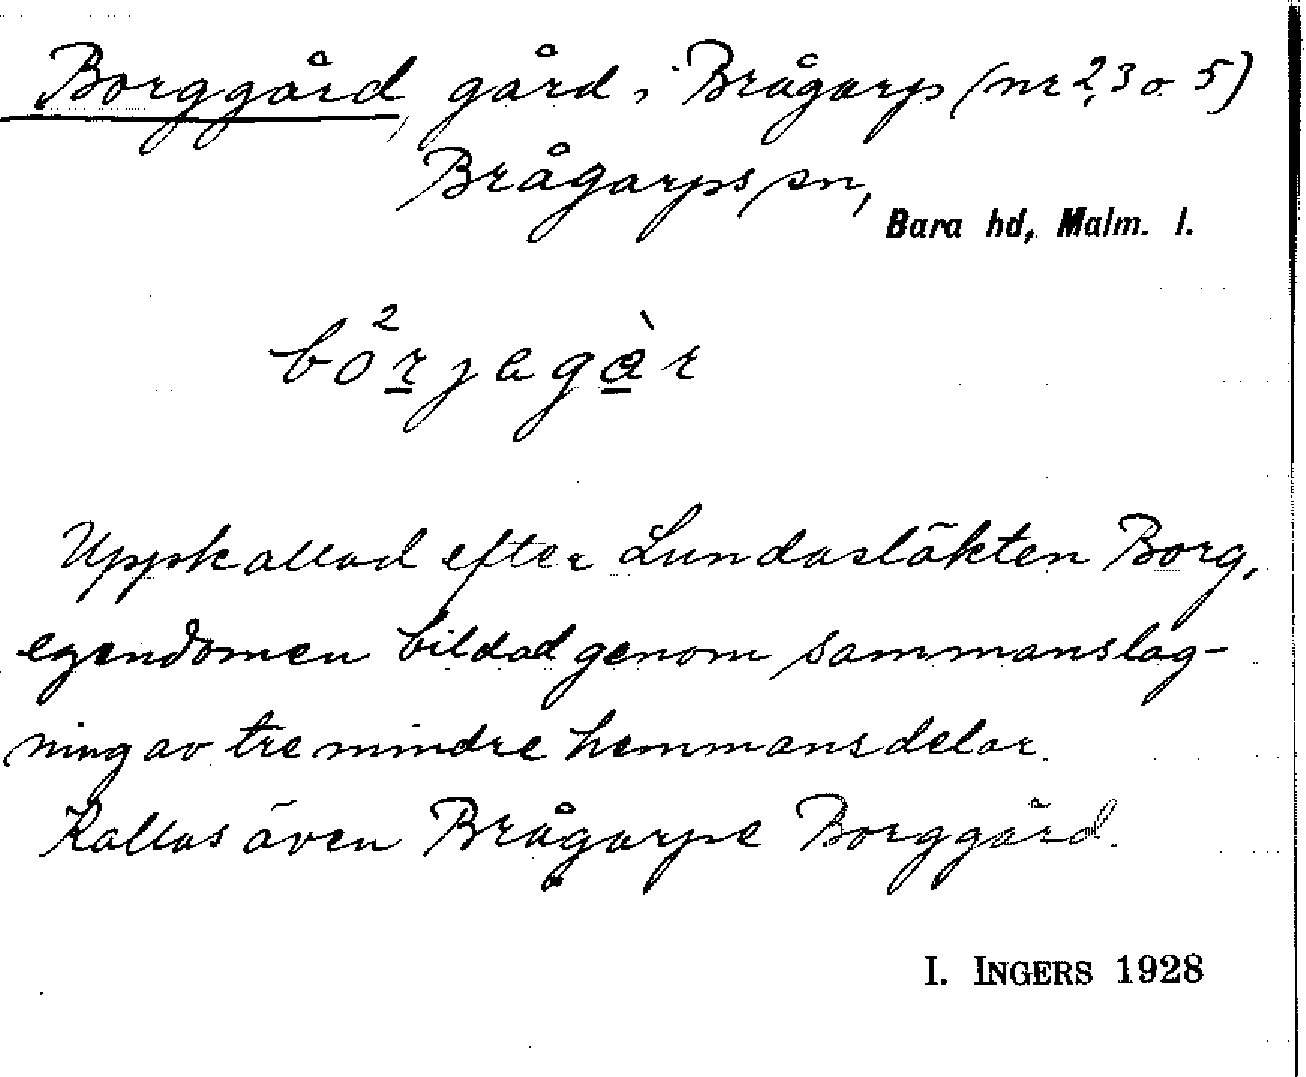 Borggård, gård i Brågarp (nr 2,3 o 5)
Brågarps sn,
Bara hd, Malm. l.
bo²rjagàr
Uppkallad efter Lundasläkten Borg,
egendomen bildad genom sammanslag-
ning av tre mindre hemmansdelar.
Kallas även Brågarps Borggård.
I. INGERS 1928